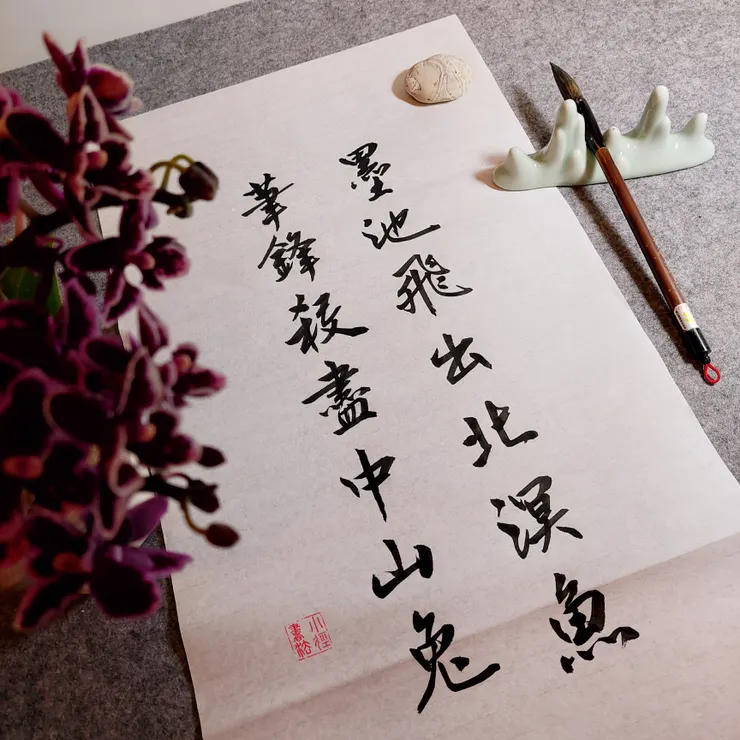 墨池飛出北溟魚
筆鋒殺盡中山兔
小徑
書松